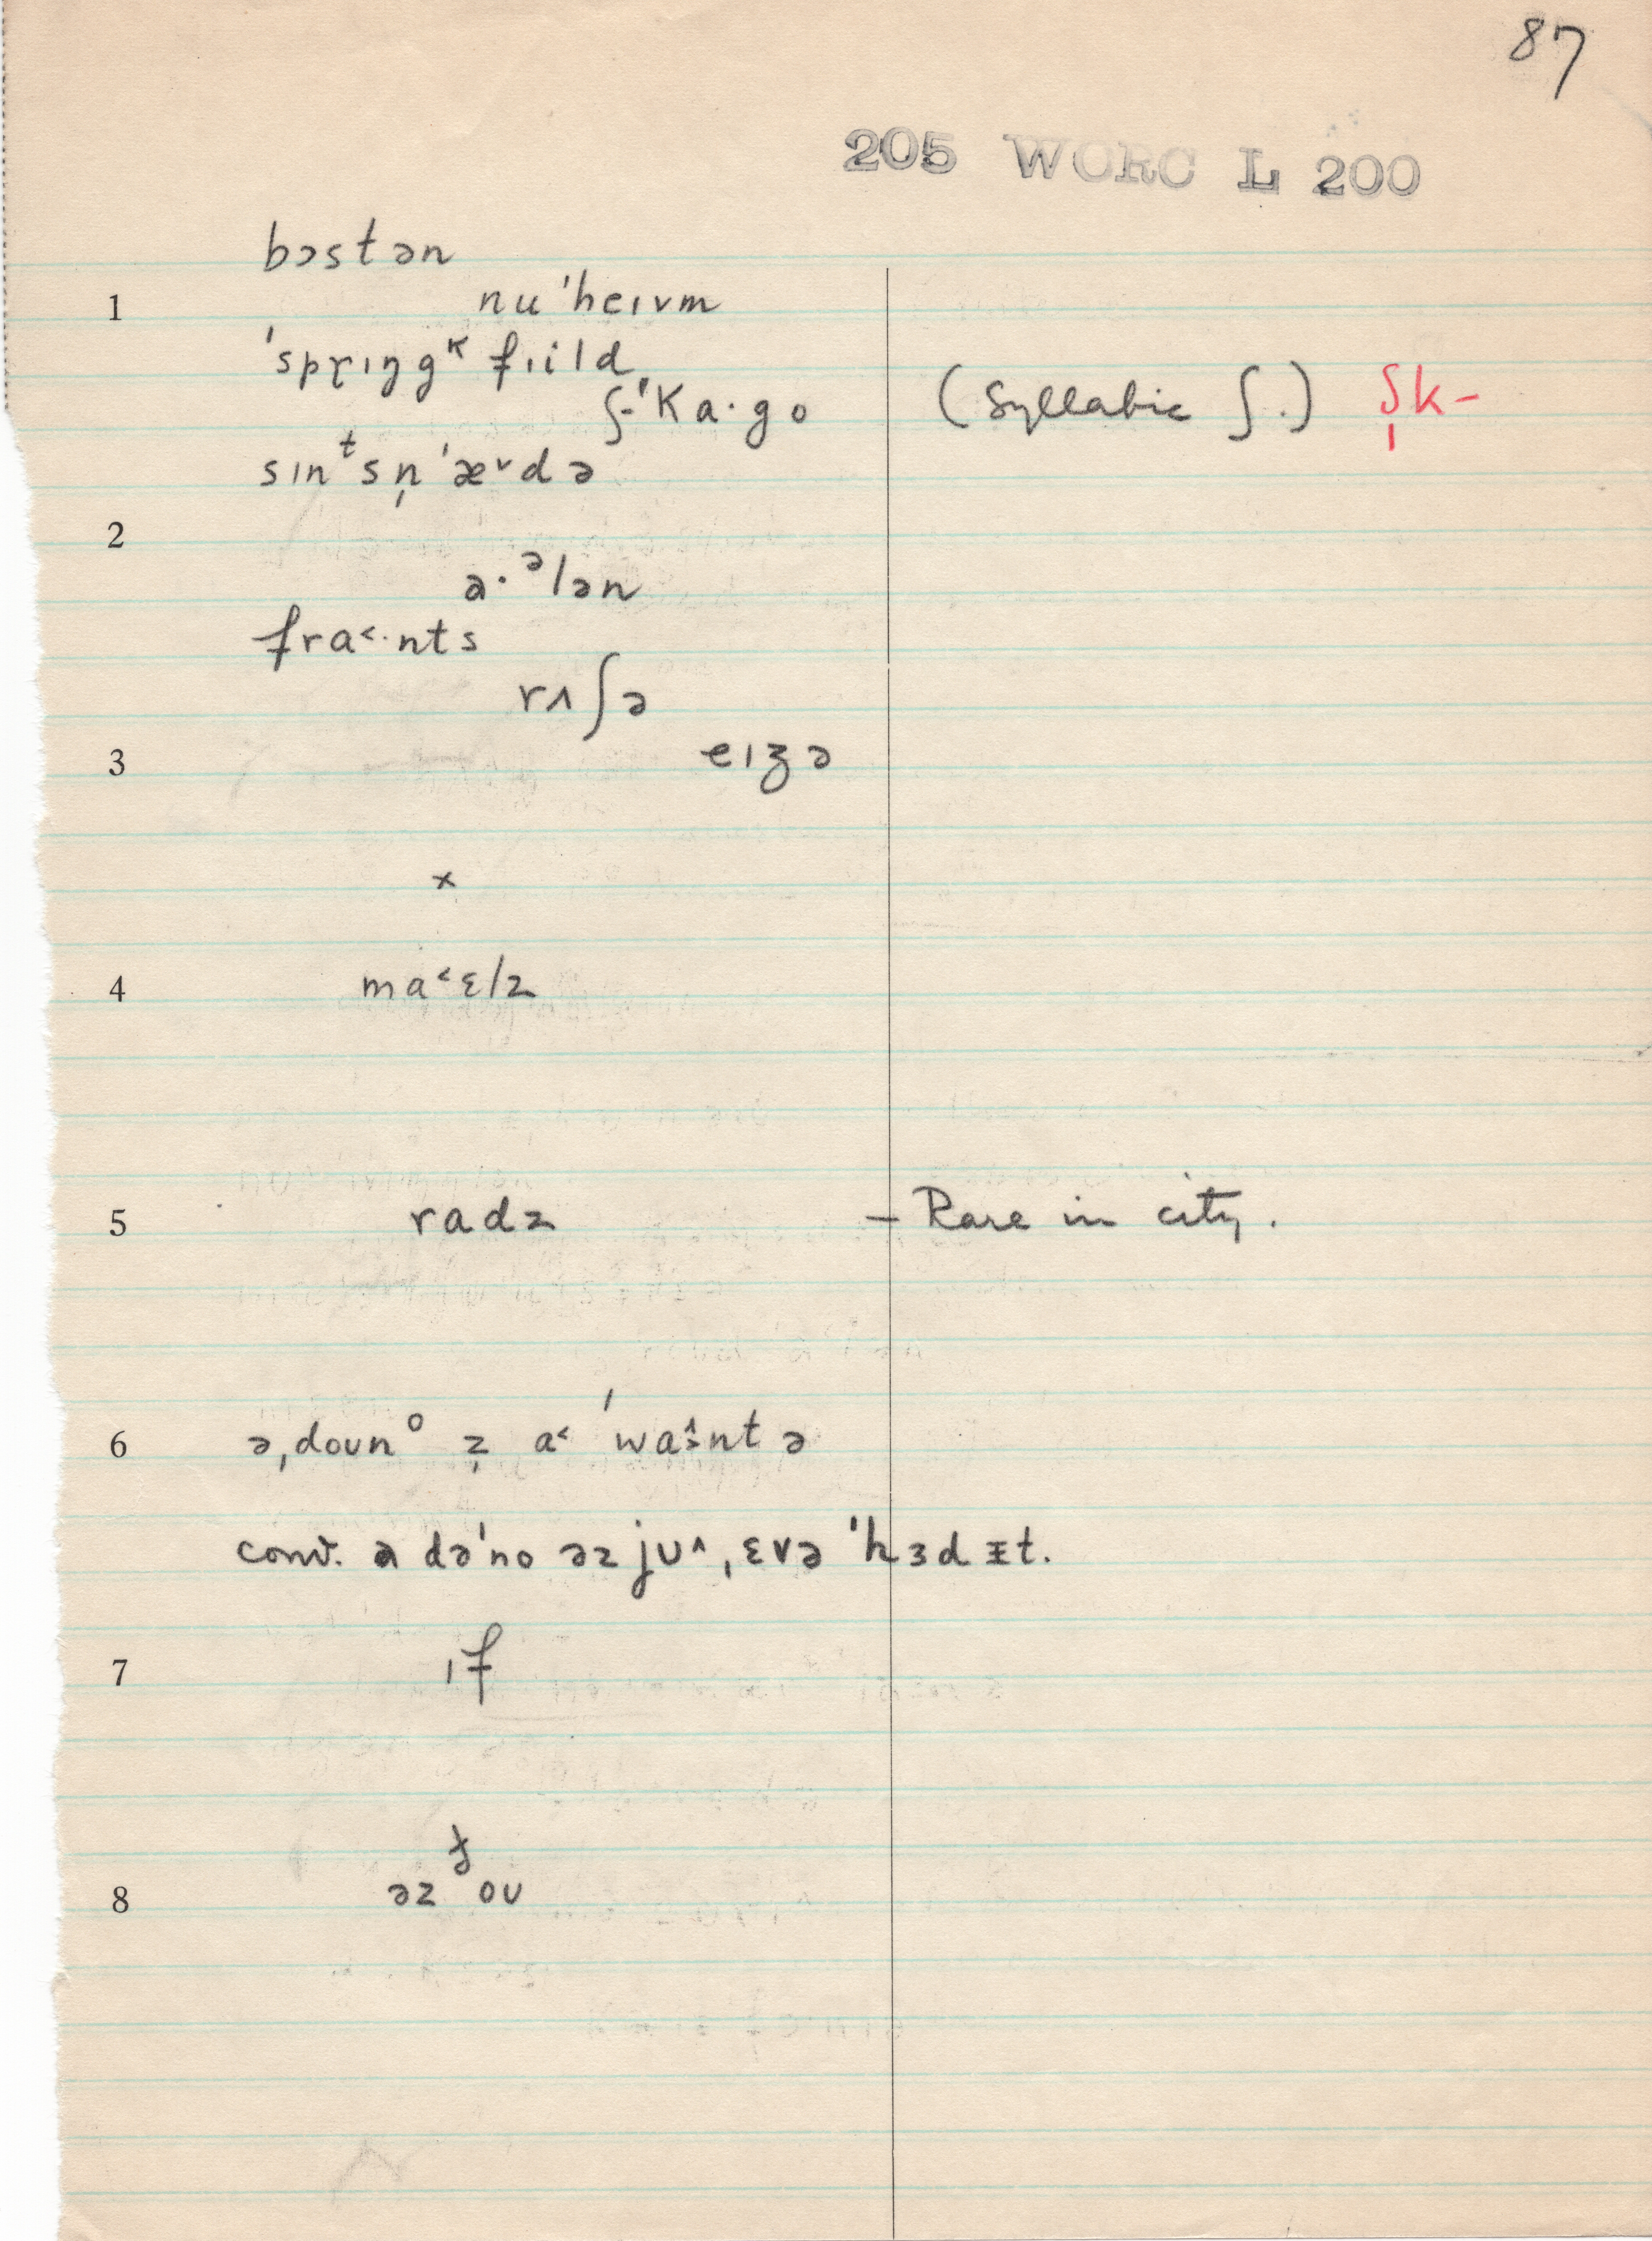 87
205 WORC L 200
bɔstən
1 nu'heɪvm
'sprɪŋgᴷ fɪild
ʃ-'Ka·go (Syllabic ʃ.) ʃ̩k-
sɪnᵗsn̩'æᵛdə
2
a·ᵊlən
fra˂·nts
rʌʃə
3 eɪʒə
x
4 ma˂ɛlz
5 radz – Rare in city.
6 ə,doʊn° z̩ a˂ 'wa⇡nt ə
conv. a də'no əz jʊ^,ɛvə 'hɜd ɪt.
7 ɪf
ɟ
8 əz oʊ